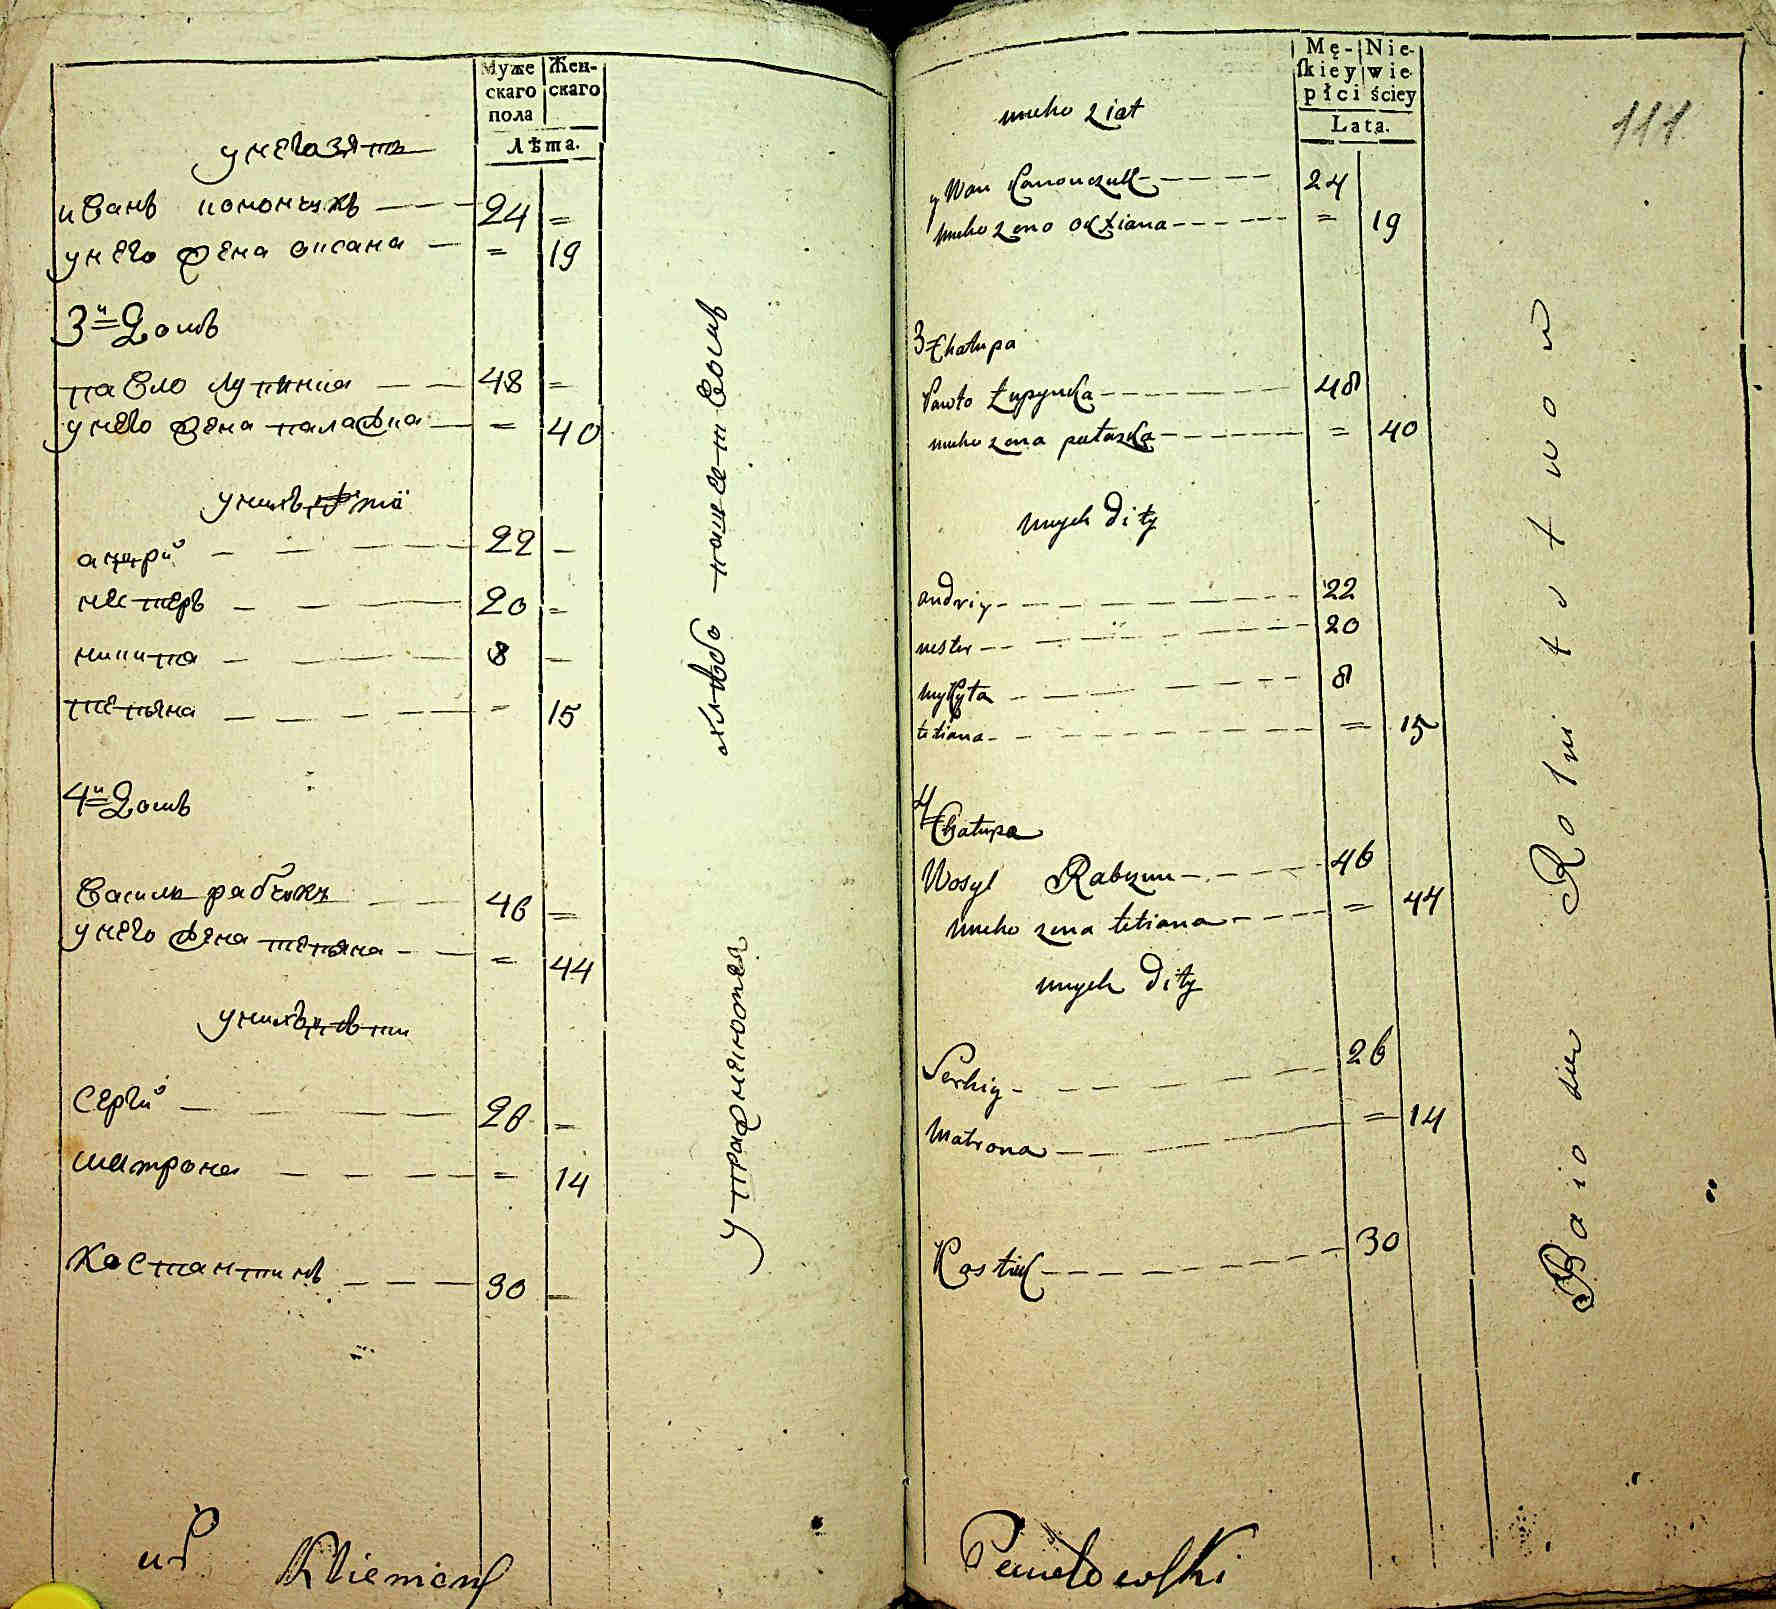 Муже скаго пола
Жен- скаго
Лѣта.
у него зять
иванъ 24 =
у него жена оксана = 19
3й домъ
павло лупинка 48 =
у него жена палажка = 40
у нихъ дѣти
андрій 22 =
нестеръ 20 =
никита 8 =
тетяна = 15
4й домъ
василь рабчунъ 46 =
у него жена тетяна = 44
у нихъ дѣти
сергій 26 =
матрона = 14
костантинъ 30 =
упражнеются хлѣбо пашествомъ
Mę- skiey płci
Nie- wie ściey
Lata.
111
uneho ziat
ywan 24
uneho zona oxiana = 19
3 Chałupa
Pawło Łupynka 48
uneho zona pałaszka = 40
unych dity
andriy 22
nester 20
mykyta 8
tetiana = 15
4 Chałupa
Wasyl Rabczun 46
uneho zona tetiana = 44
unych dity
Serhiy 26
Matrona = 14
Kostiuk 30
Baio sie Rolni ctwow